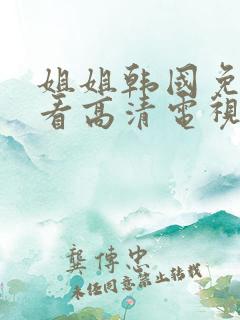 姐姐韩国免
看高清電視
龔傳忠
未经同意禁止转载